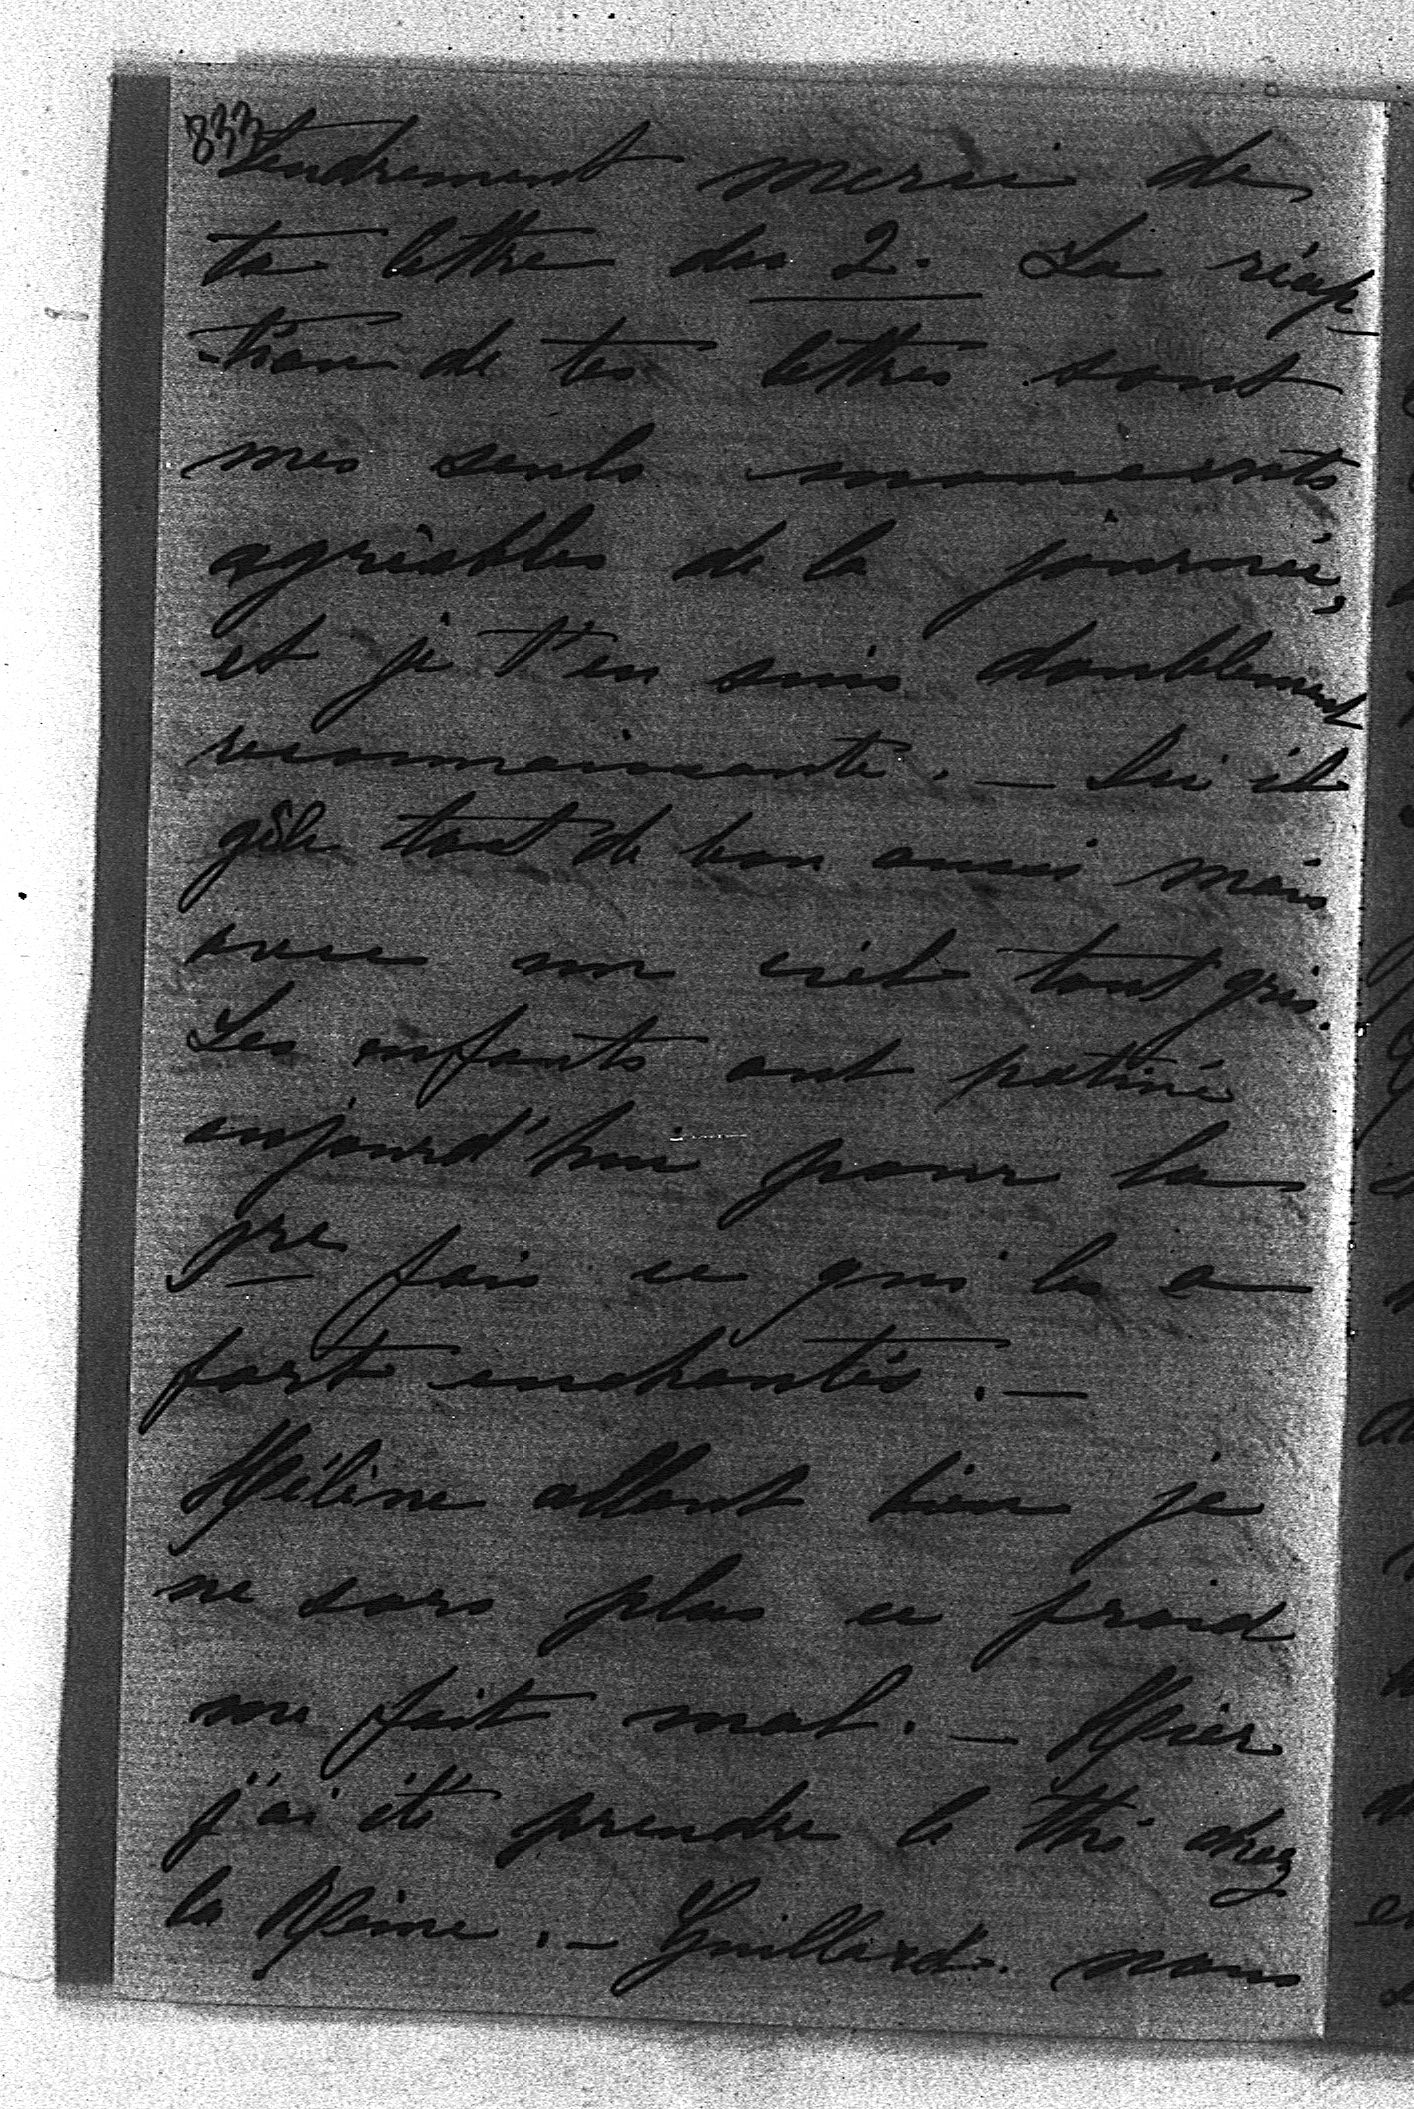 833
Tendrement merci de
ta lettre du 2. La récep
-tion de tes lettres sont
mes seuls moments
agréables de la journée,
et je t'en suis doublement
reconnaissante. — Ici il
gèle tout de bon aussi mais
avec un ciel tout gris.
Les enfants ont patiné
aujourd'hui pour la
1re fois ce qui les a
fort enchantés. —
Hélène allant bien je
ne sors plus ce froid
me fait mal. — Hier
j'ai été prendre le thé chez
la Reine. — Guillard. nous